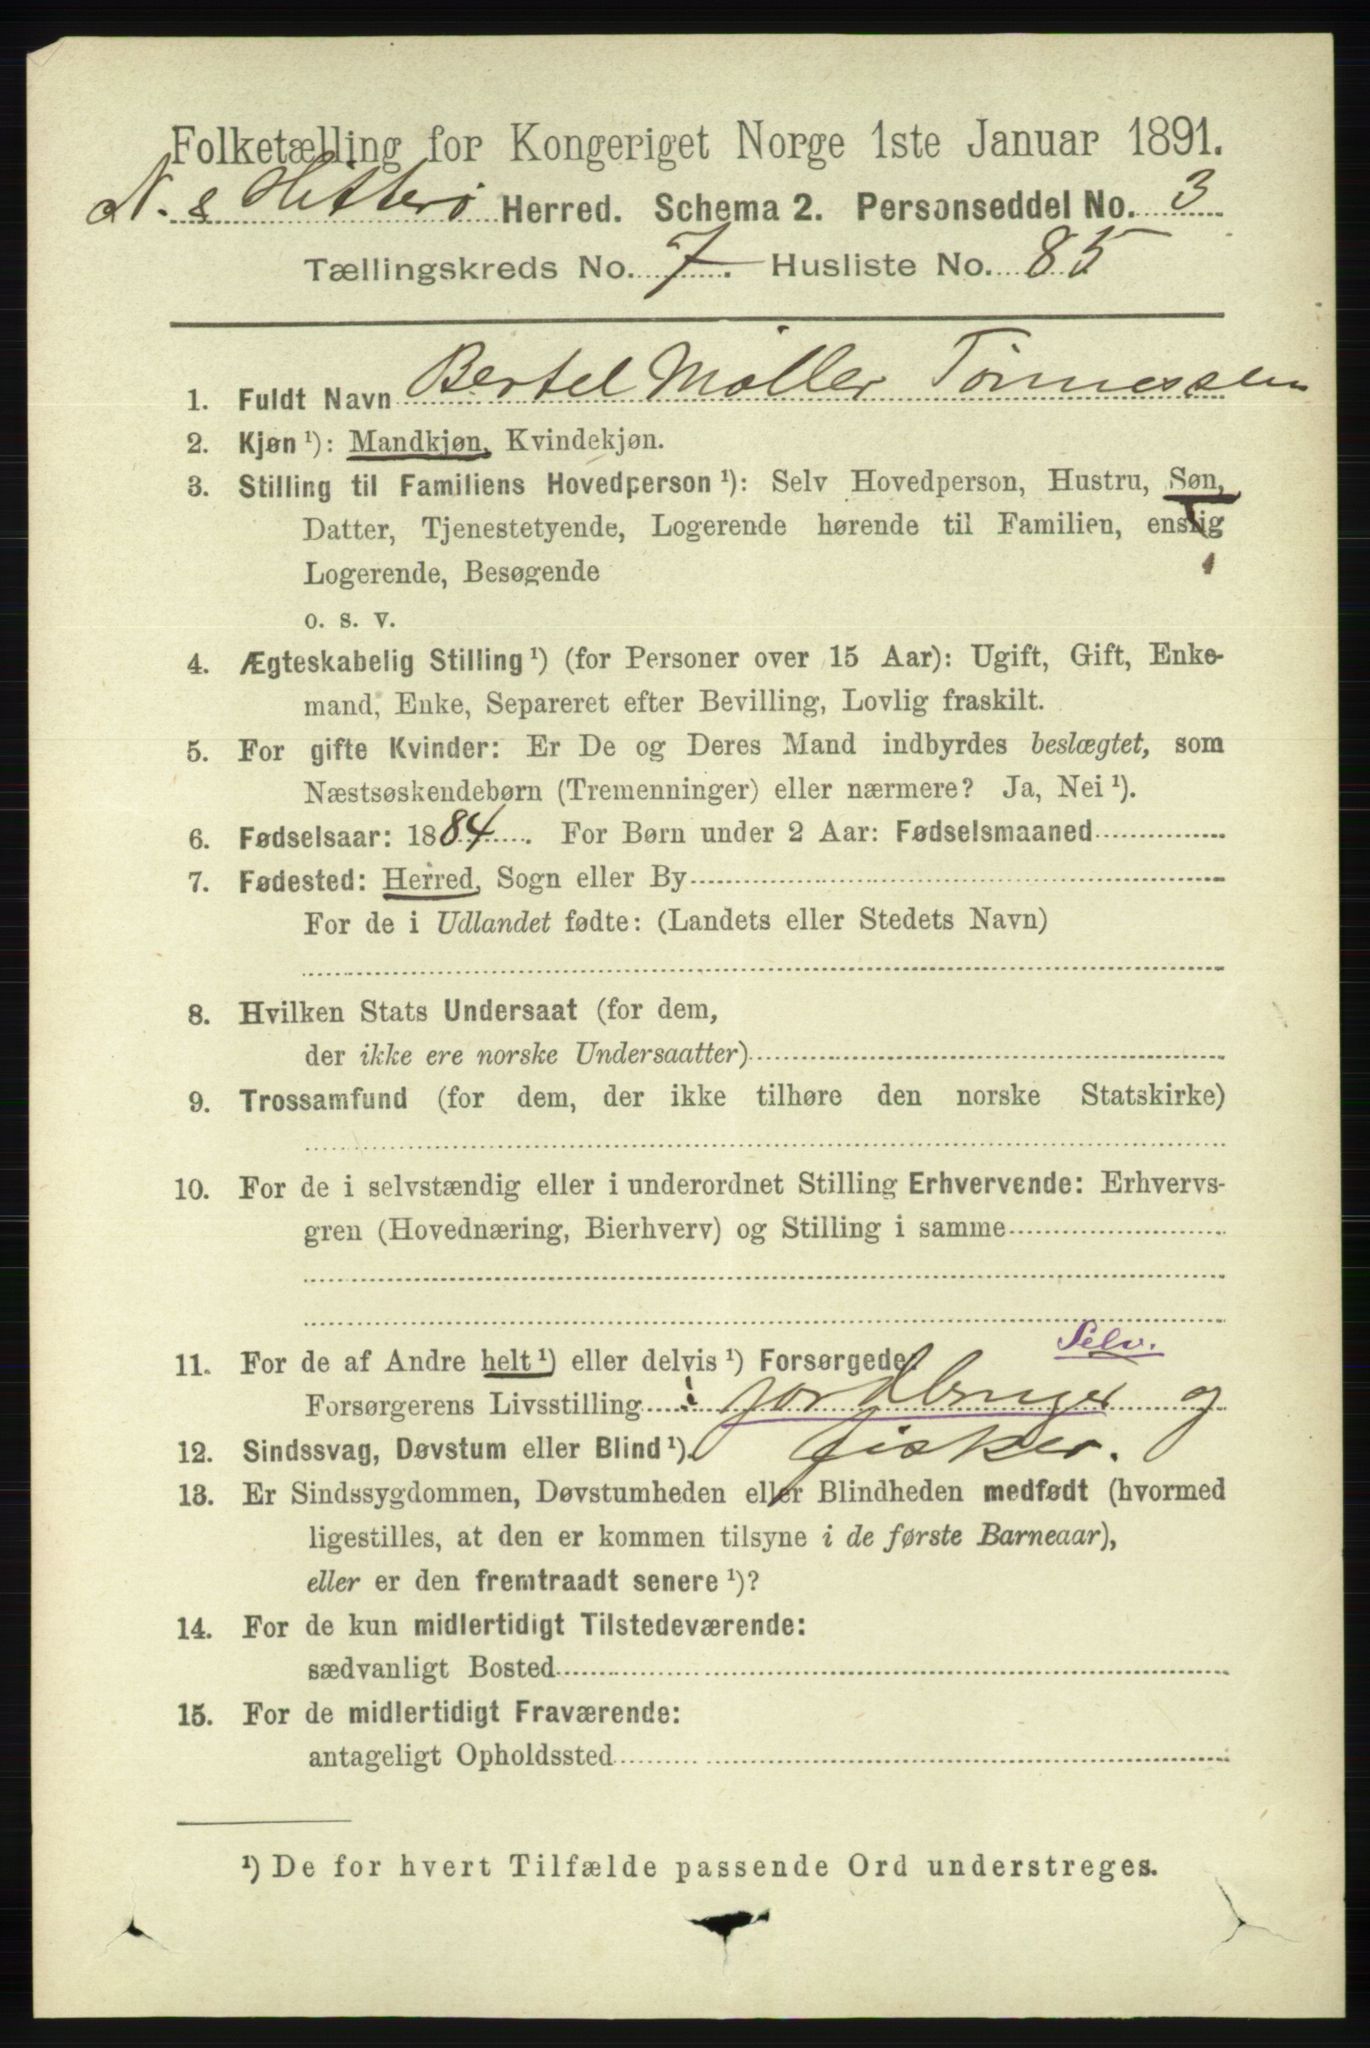 Folketælling for Kongeriget Norge 1ste Januar 1891.
N. & Hitterø Herred. Schema 2. Personseddel No. 3
Tællingskreds No. 7. Husliste No. 85
1. Fuldt Navn Bertel Møller Tønnessen
2. Kjøn ¹): Mandkjøn, Kvindekjøn.
3. Stilling til Familiens Hovedperson ¹): Selv Hovedperson, Hustru, Søn,
Datter, Tjenestetyende, Logerende hørende til Familien, enslig
Logerende, Besøgende
o. s. v.
4. Ægteskabelig Stilling ¹) (for Personer over 15 Aar): Ugift, Gift, Enke-
mand, Enke, Separeret efter Bevilling, Lovlig fraskilt.
5. For gifte Kvinder: Er De og Deres Mand indbyrdes beslægtet, som
Næstsøskendebørn (Tremenninger) eller nærmere? Ja, Nei ¹).
6. Fødselsaar: 1884. For Børn under 2 Aar: Fødselsmaaned
7. Fødested: Herred, Sogn eller By
For de i Udlandet fødte: (Landets eller Stedets Navn)
8. Hvilken Stats Undersaat (for dem,
der ikke ere norske Undersaatter)
9. Trossamfund (for dem, der ikke tilhøre den norske Statskirke)
10. For de i selvstændig eller i underordnet Stilling Erhvervende: Erhvervs-
gren (Hovednæring, Bierhverv) og Stilling i samme
Selv.
11. For de af Andre helt ¹) eller delvis ¹) Forsørgede:
Forsørgerens Livsstilling: jordbruger og
12. Sindssvag, Døvstum eller Blind ¹). fisker.
13. Er Sindssygdommen, Døvstumheden eller Blindheden medfødt (hvormed
ligestilles, at den er kommen tilsyne i de første Barneaar),
eller er den fremtraadt senere ¹)?
14. For de kun midlertidigt Tilstedeværende:
sædvanligt Bosted
15. For de midlertidigt Fraværende:
antageligt Opholdssted
¹) De for hvert Tilfælde passende Ord understreges.